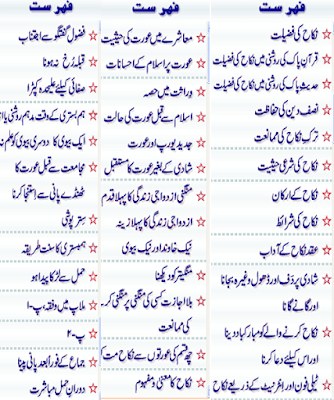 فہرست
نکاح کی فضیلت
قرآنِ پاک کی روشنی میں نکاح کی فضیلت
حدیثِ پاک کی روشنی میں نکاح کی فضیلت
نصف دین کی حفاظت
ترکِ نکاح کی ممانعت
نکاح کی شرعی حیثیت
نکاح کے ارکان
نکاح کی شرائط
عقدِ نکاح کے آداب
شادی پر دف اور ڈھول وغیرہ بجانا
اور گانے گانا
نکاح کرنے والے کو مبارکباد دینا
اور اس کیلئے دعا کرنا
ٹیلی فون اور انٹرنیٹ کے ذریعے نکاح
فہرست
معاشرے میں عورت کی حیثیت
عورت پر اسلام کے احسانات
وراثت میں حصہ
اسلام سے قبل عورت کی حالت
جدید یورپ اور عورت
شادی کے بغیر عورت کا مستقبل
منگنی ازدواجی زندگی کا پہلا قدم
ازدواجی زندگی کا پہلا زینہ
نیک خاوند اور نیک بیوی
منگیتر کو دیکھنا
بلا اجازت کسی کی منگنی پر منگنی کر۔
کی ممانعت
چھ قسم کی عورتوں سے نکاح مت کر
نکاح کا معنی و مفہوم
فہرست
فضول گفتگو سے اجتناب
قبلہ رُخ نہ ہونا
صفائی کیلئے علیحدہ کپڑا
ہم بستری کے وقت مدہم روشنی یا
ایک بیوی کا دوسری بیوی کو علم نہ
مجامعت سے قبل عورت کا
ٹھنڈے پانی سے استنجا کرنا
ستر پوشی
ہمبستری کا سنت طریقہ
حمل سے لڑکا پیدا ہو
ملاپ میں وقفہ، پ-۱
پ-۲
جماع کے فوراً بعد پانی پینا
دورانِ حمل مباشرت